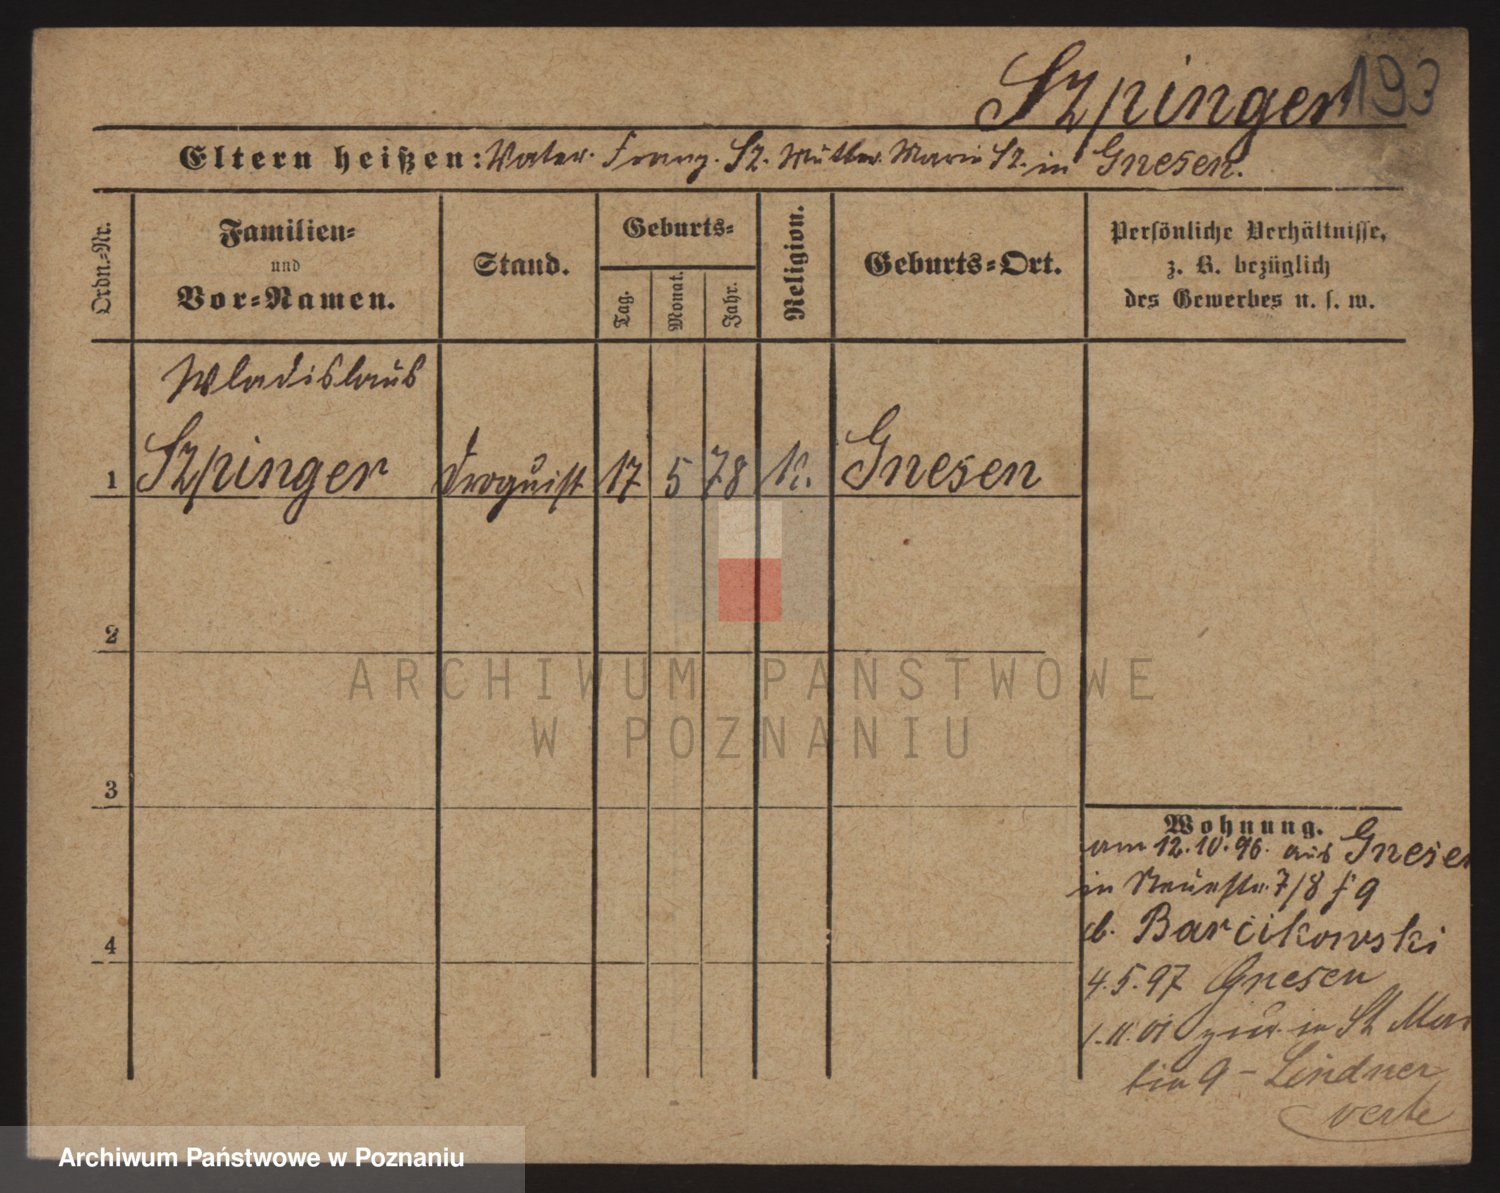 Szpinger 193
Eltern heißen: Vater. Franz. Sz. Mutter Marie Sz. in Gnesen.
Ordn.-Nr.
Familien-
und
Vor-Namen.
Stand.
Geburts-
Tag.
Monat.
Jahr.
Religion.
Geburts-Ort.
Persönliche Verhältnisse,
z. B. bezüglich
des Gewerbes u. s. w.
Wladislaus
1 Szpinger Droguist 17 5 78 K. Gnesen
2
3
4
Wohnung.
am 12.10.96. aus Gnesen
in Neuestr. 7/8
b. Barcikowski
4.5.97 Gnesen
1.11.01 zur. in St Mar
tin 9 - Lindner
verte
ARCHIWUM PAŃSTWOWE
W POZNANIU
Archiwum Państwowe w Poznaniu